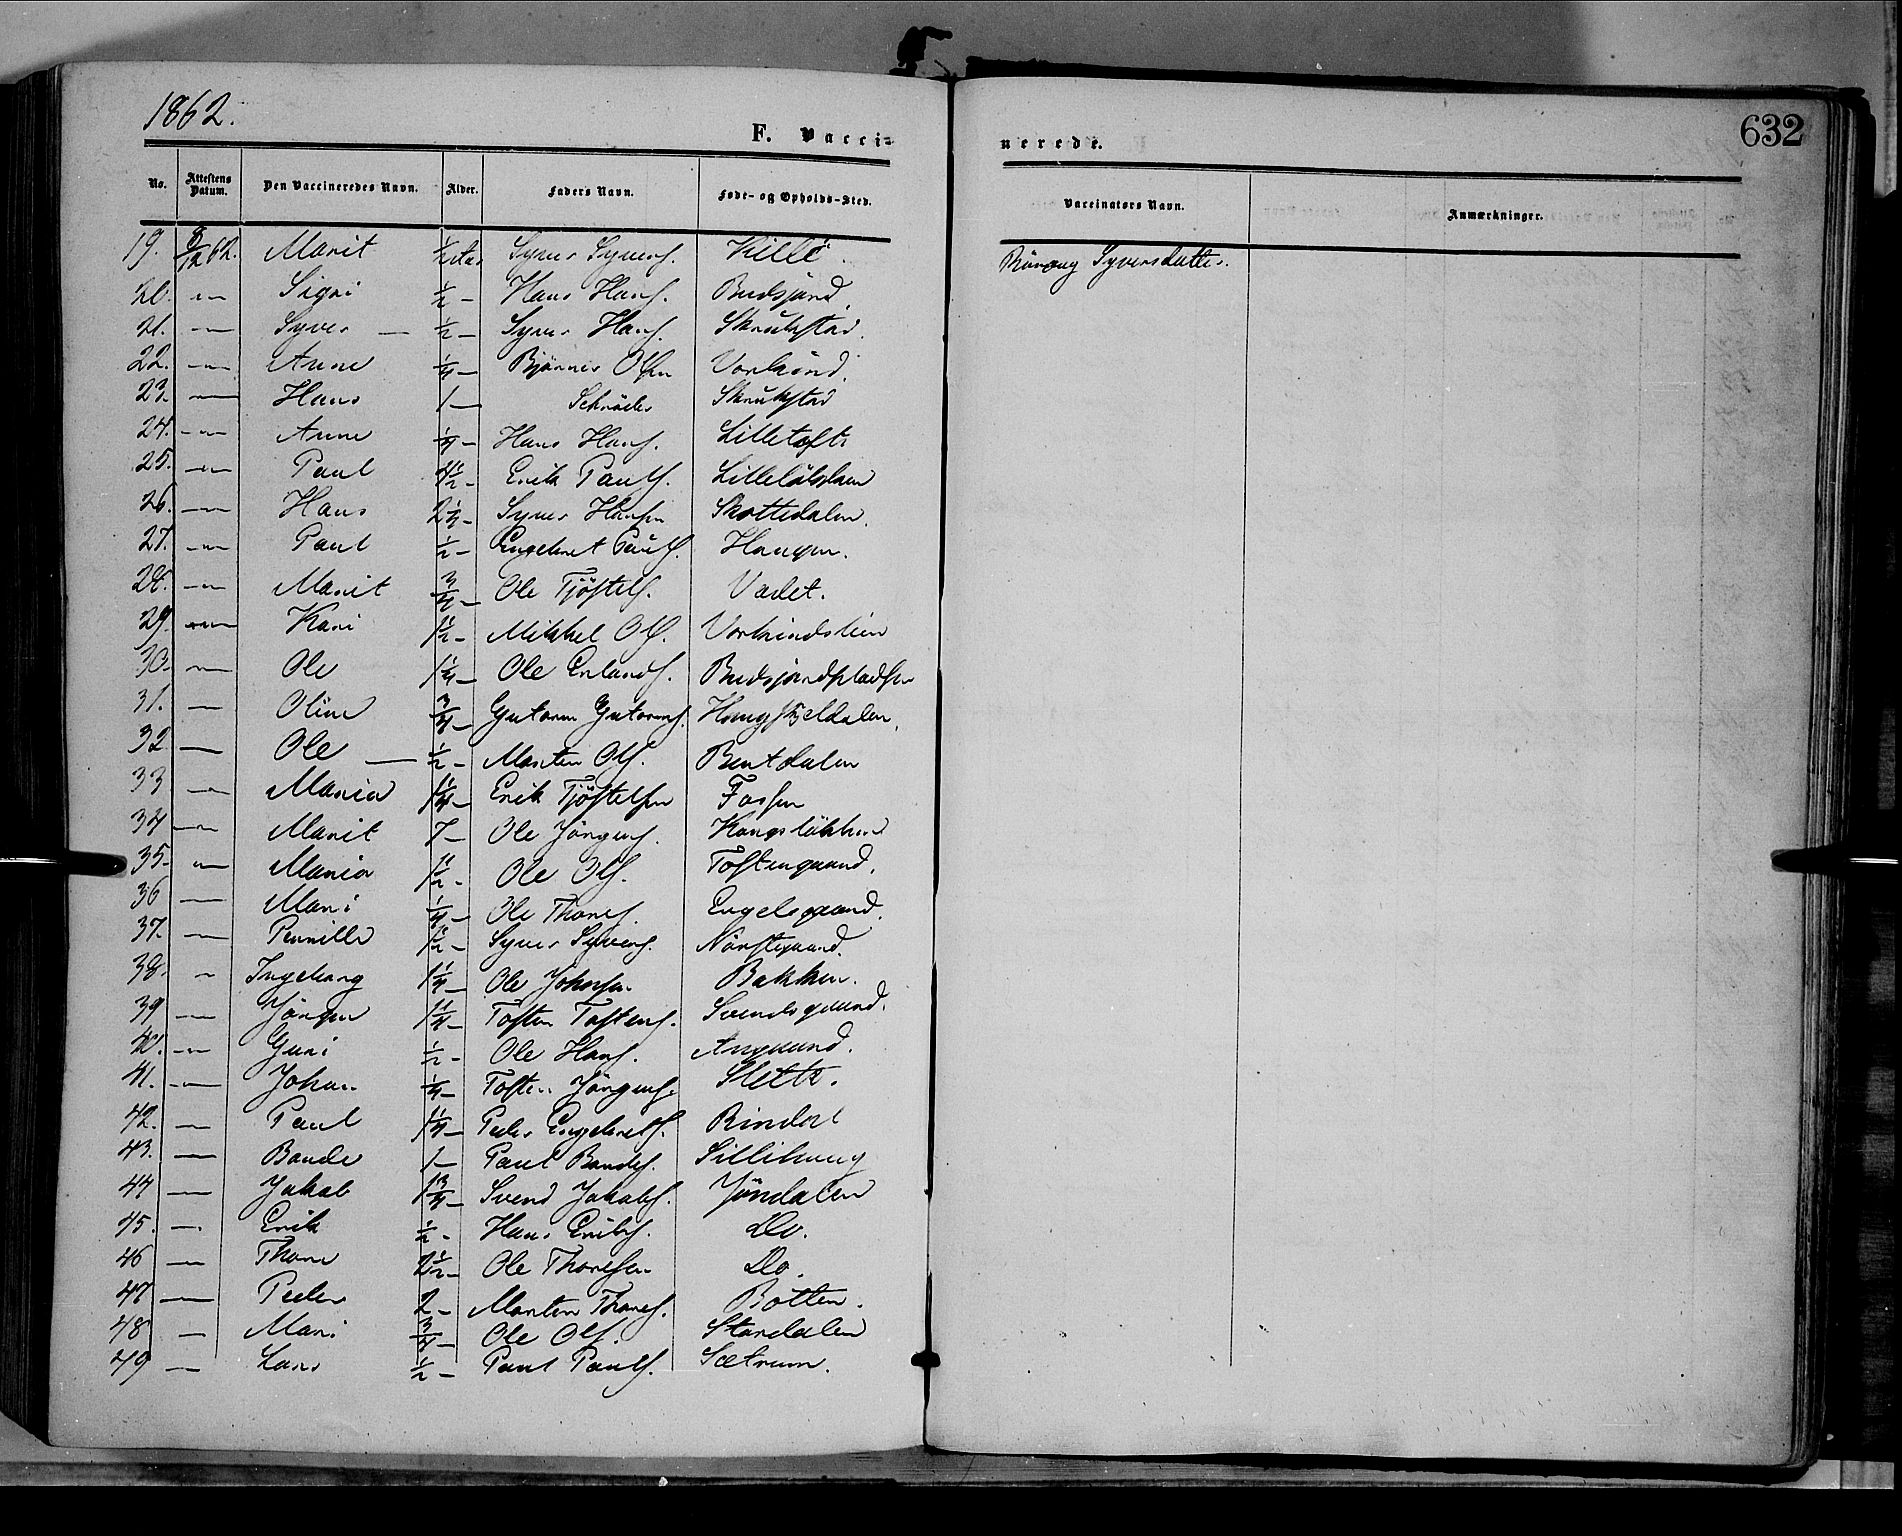 1862.
F. Vacci=
nerede.
632
No. Attestens Datum. Den Vaccineredes Navn. Alder. Faders Navn. Føde- og Opholds-Sted. Vaccinators Navn. Anmærkninger.
19. 8/12 62. Marit 1/2 Syver Syvers. Kille. Rönnoug Syversdatter.
20. — Sigri 1/2 — Hans Hans. Budsjord.
21. — Syver — 1/2 — Syver Hans. Skrukstad.
22. — Anne 1/4 — Bjørner Olsen Vorkind.
23. — Hans 1 — Schrøder Skrukstad
24. — Anne 1/4 — Hans Hans. Lilletofte
25. — Paul 4 1/2 — Erik Pauls.
26. — Hans 2 1/2 — Syver Hansen Skottedalen.
27. — Paul 1/2 — Engebret Pauls. Haugen.
28. — Marit 3/4 — Ole Tjöstels. Vadet.
29. — Kari 1 1/2 — Mikkel Ols. Vorkindslien
30. — Ole 1 1/4 — Ole Erlands. Budsjordpladsen
31. — Oline 3/4 — Gutorm Gutorms.
32 — Ole — 1/2 — Morten Ols. Bentdalen
33 — Maria 1 1/4 — Erik Tjöstelsen Fossen
34 — Marit 7 — Ole Jörgens. Kongslökken
35. — Maria 1 1/2 — Ole Ols. Toftengaard.
36 — Mari 1/4 — Ole Thores. Engelsgaard.
37. — Pernille 1 1/2 — Syver Syvers. Nörstegaard.
38. — Ingeborg 1 1/4 — Ole Johnsen Bakken.
39 — Jörgen 1 1/4 — Tosten Tostens. Svendsgaard.
40. — Guri 1/2 — Ole Hans. Angaard.
41. — Johan 1/4 — Tosten Jörgens. Slette.
42. — Paul 1 1/4 — Peder Engebrets. Rindal
43. — Baude 1 — Paul Baudes. Sillihaug
44 — Jakob 1 3/4 — Svend Jakobs. Jöndalen
45. — Erik 1/2 — Hans Eriks. Do.
46 — Thore 2 1/2 — Ole Thoresen Do.
47 — Peder 2 — Morten Thores. Botten.
48 — Mari 3/4 — Ole Ols. Stordalen
49 — Lars 1/2 — Paul Pauls. Sætrum.